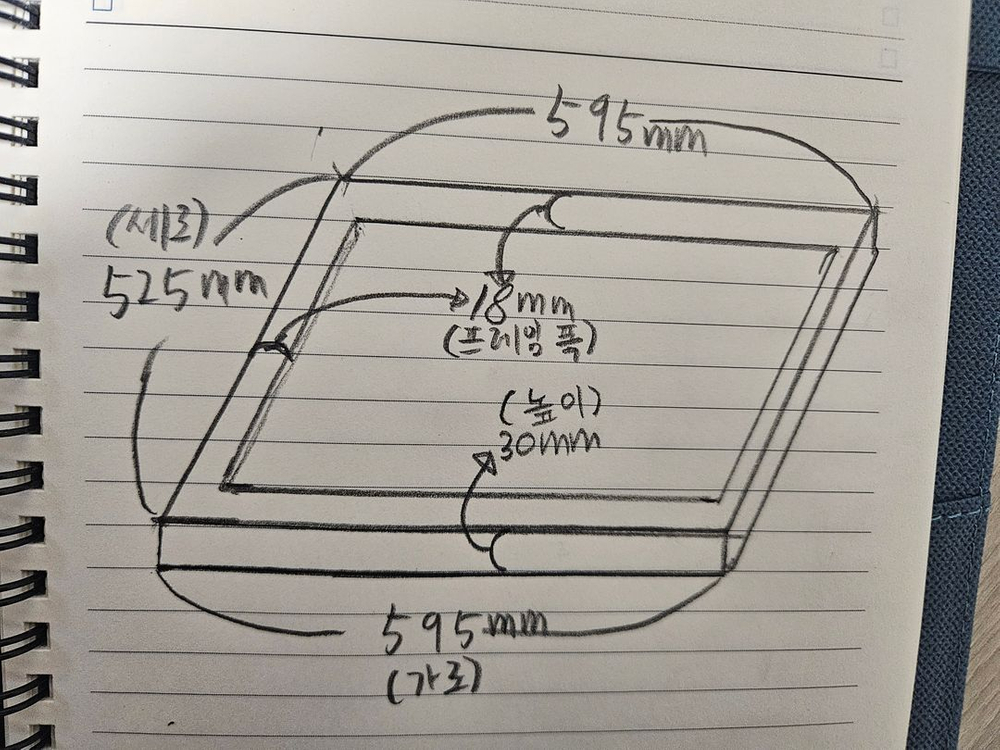 595mm
(세로)
525mm
18mm
(프레임 폭)
(높이)
30mm
595mm
(가로)